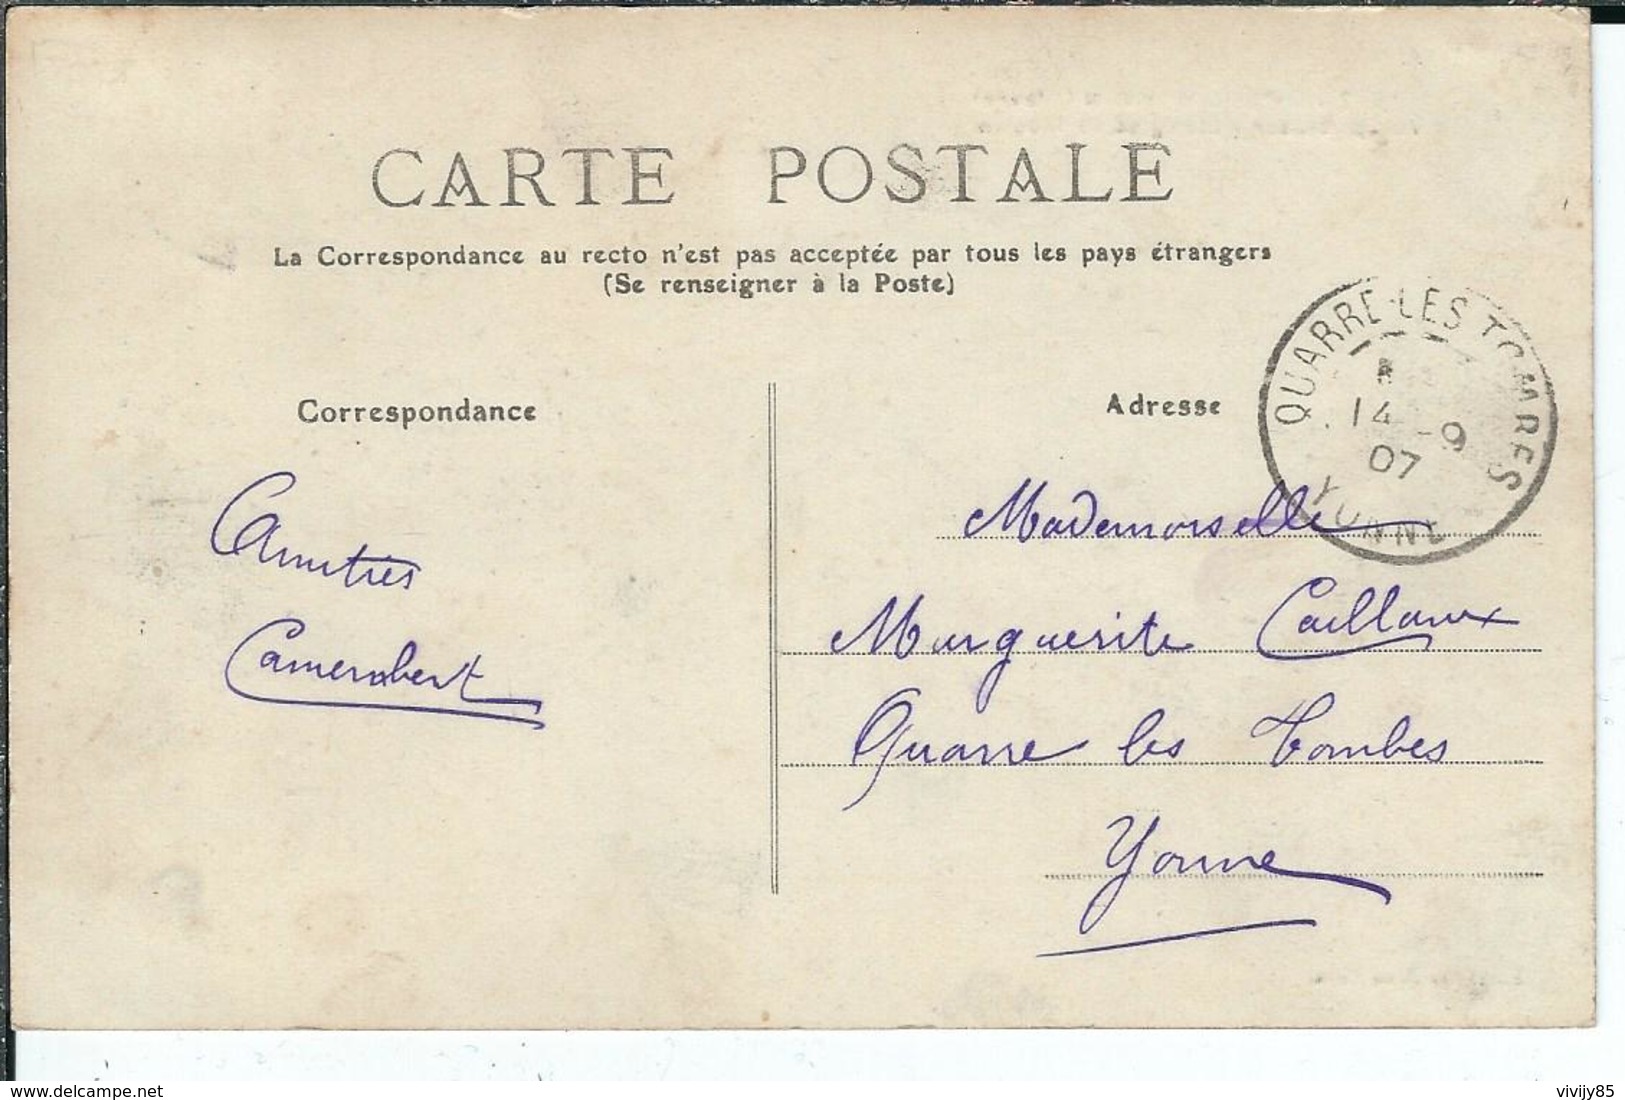 CARTE POSTALE
La Correspondance au recto n'est pas acceptée par tous les pays étrangers
(Se renseigner à la Poste)
QUARRÉ-LES-TOMBES
14 -9
07
YONNE
Correspondance
Adresse
Amitiés
Camerobert
Mademoiselle
Marguerite Caillaux
Quarre les Tombes
Yonne
www.delcampe.net
vivijy85